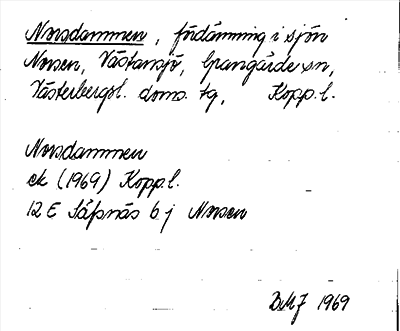 Norsdammen, fördämning i sjön
Norsen, Västansjö, Grangärde sn,
Västerbergsl. doms. tg, Kopp.l.
Norsdammen
ek (1969) Kopp.l.
12 E Säfsnäs 6 j Norsen
1969